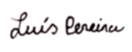 Luís Pereira